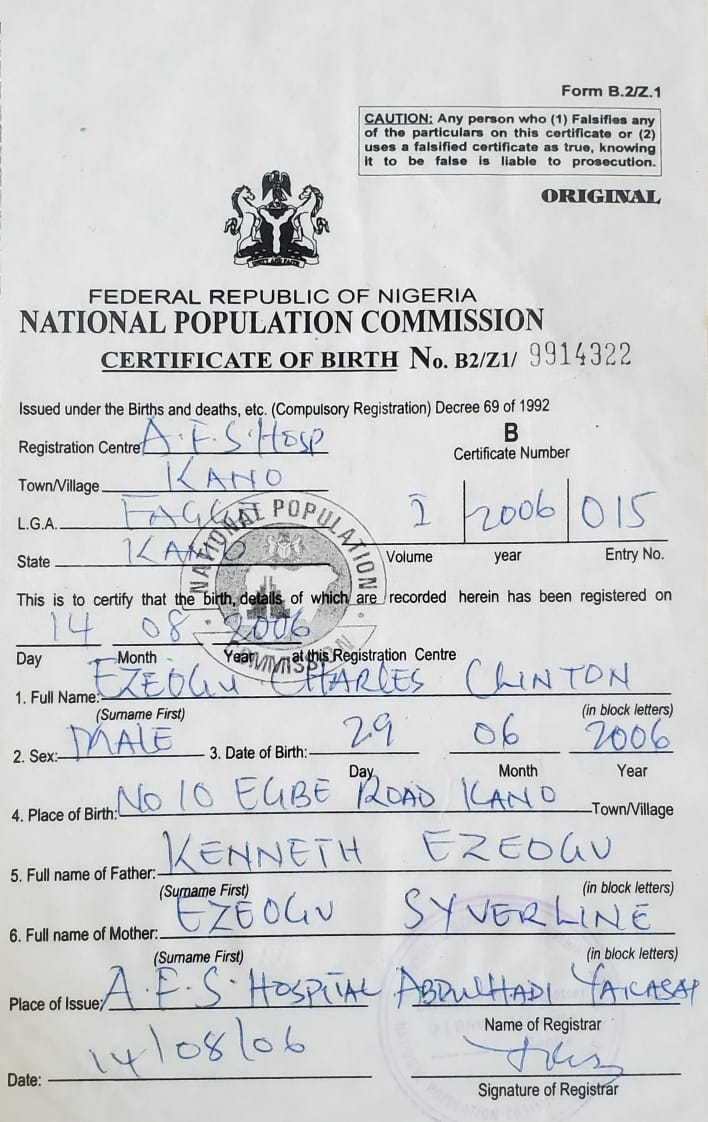 Form B.2/Z.1
CAUTION: Any person who (1) Falsifies any
of the particulars on this certificate or (2)
uses a falsified certificate as true, knowing
it to be false is liable to prosecution.
ORIGINAL
UNITY AND FAITH
FEDERAL REPUBLIC OF NIGERIA
NATIONAL POPULATION COMMISSION
CERTIFICATE OF BIRTH No. B2/Z1/ 9914322
Issued under the Births and deaths, etc. (Compulsory Registration) Decree 69 of 1992
Registration Centre A.F.S. Hosp
B
Certificate Number
Town/Village KANO
L.G.A. FAGGE
I 2006 015
State KANO
Volume year Entry No.
NATIONAL POPULATION COMMISSION
This is to certify that the birth, details of which are recorded herein has been registered on
14 08 2006
Day Month Year at this Registration Centre
1. Full Name: EZEOGU CHARLES CLINTON
(Surname First) (in block letters)
2. Sex: MALE 3. Date of Birth: 29 06 2006
Day Month Year
4. Place of Birth: No 10 EGBE ROAD KANO Town/Village
5. Full name of Father: KENNETH EZEOGU
(Surname First) (in block letters)
6. Full name of Mother: EZEOGU SYVERLINE
(Surname First) (in block letters)
Place of Issue: A.F.S. HOSPITAL ABDULHADI YAKASAI
Name of Registrar
Date: 14/08/06
Signature of Registrar